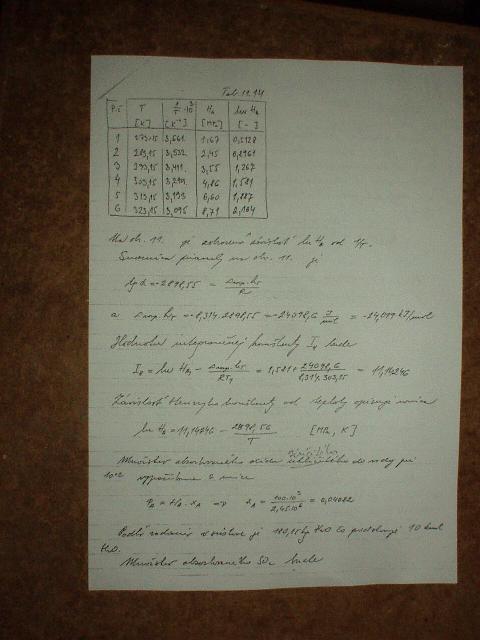 Tab. 11.14
P.č. T 1/T · 10³ H_A ln H_A
[K] [K⁻¹] [MPa] [-]
1 273,15 3,661 1,67 0,5128
2 283,15 3,532 2,45 0,8961
3 293,15 3,411 3,55 1,267
4 303,15 3,299 4,86 1,581
5 313,15 3,193 6,60 1,887
6 323,15 3,095 8,71 2,164
Na obr. 11. je závislosť ln H_A od 1/T.
Smernica priamky na obr. 11. je
tg α = -2898,55 =
a = -8,314.2898,55 = -24098,6 J/mol = -24,099 kJ/mol
Hodnota integračnej konštanty I_R bude
I_R = ln H_A - = 1,581 + 24098,6 / 8,314.303,15 = 11,14246
Závislosť Henryho konštanty od teploty opisuje rovnica
ln H_A = 11,14246 - 2898,56 / T [MPa, K]
Množstvo absorbovaného oxidu siričitého do vody pri
10°C vypočítame z rovnice
p_A = H_A . x_A => x_A = 100.10³ / 2,45.10⁶ = 0,04082
Podľa zadania je 180,15 kg H₂O čo predstavuje 10 kmol
H₂O.
Množstvo absorbovaného SO₂ bude